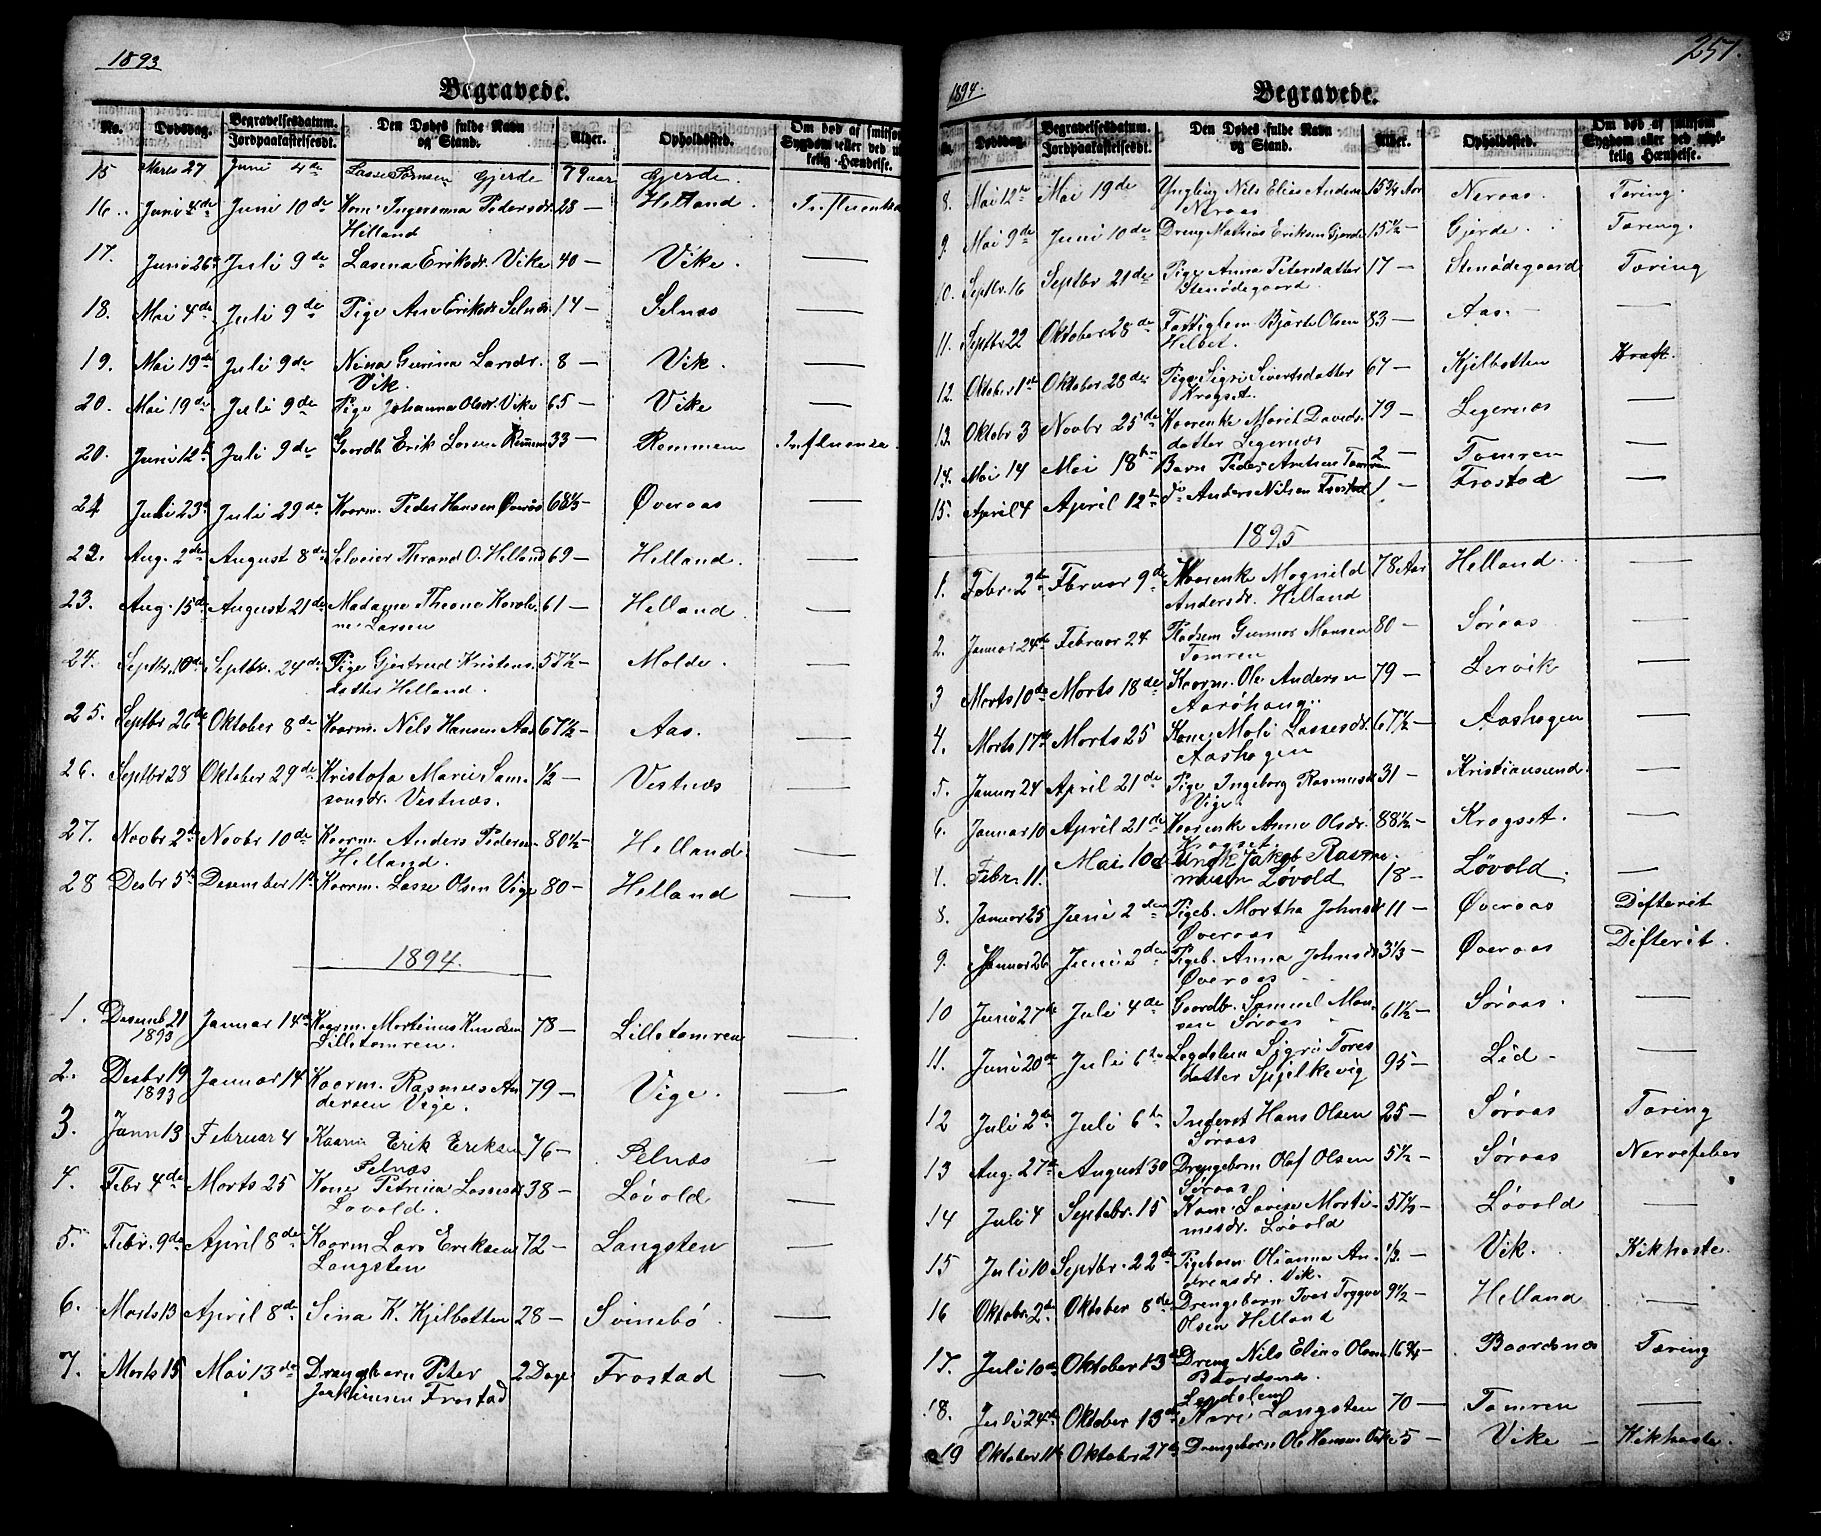 1893
Begravede.
No. Dødsdag. Begravelsesdatum. Jordpaakastelsesdt. Den Dødes fulde Navn og Stand. Alder. Opholdssted. Om død af smitsom Sygdom eller ved
kelig Hændelse.
15 Marts 27 Juni 4de Lasse Gjerde 79 aar Gjerde.
16. Juni 4de Juni 10de Kone Ingeranna Pedersdr. 28 — Helland. Influenka
Helland
17. Juni 26 Juli 9de Lasina Eriksdr. Vike 40 — Vike. —
18. Mai 4de Juli 9de Pige Ane Eriksdr Selnæs 14 — Selnæs —
19. Mai 19de Juli 9de Nina Gurina Larsdr. 8 — Vik. —
Vik.
20. Mai 19de Juli 9de Pige Johanna Olsdr. Vike 65 — Vike —
20. Juni 12te Juli 9de Gaardb Erik Larsen Remmem 33 — Remmem Influensa.
21 Juli 23 Juli 29de Kaarm. Peder Hansen Øveraas 68½ — Øveraas —
22. Aug. 2den August 8de Selveier Thrand O. Helland 69 — Helland. —
23. Aug. 15de August 21de Madame Theona Karoli- 61 — Helland. —
ne Larsen
24. Septbr. 10de Septbr. 24de Pige Gjertrud Kristens 57½ — Molde. —
datter Helland.
25. Septbr 26de Oktober 8de Kaarm. Nils Hansen Aas 67½ — Aas. —
26. Septbr 28 Oktober 29de Kristofa Marie Sam- ½ — Vestnæs —
sonsdr. Vestnæs.
27. Novbr 2de Novbr 10de Kaarm. Anders Pedersen 80½ — Helland. —
Helland.
28 Desbr 5te Desember 11te Kaarm. Lasse Olsen Vige 80 — Helland —
1894.
1. Desemb 21 Januar 14de Kaarm. Martinus Knudsen 78 — Lilletomren —
1893 Lilletomren.
2. Desbr 19 Januar 14 Kaarm. Rasmus An 79 — Vige. —
1893 dersen Vige.
3. Janu 13 Februar 4 Kaarm Erik Eriksen 76 — Selnæs —
Selnæs
4. Febr 4de Marts 25 Kone Petrina Lassesdr 38 — Løvold —
Løvold.
5. Febr. 9de April 8de Kaarm Lars Eriksen 72 — Langsten —
Langsten
6. Marts 13 April 8de Sina K. Kjelbotten 28 — Svinebø —
7. Marts 15 Mai 13de Drengbarn Peter 2 Dage Frostad —
Joakimsen Frostad
257.
1894.
Begravede.
No. Dødsdag. Begravelsesdatum. Jordpaakastelsesdt. Den Dødes fulde Navn og Stand. Alder. Opholdssted. Om død af smitsom Sygdom eller ved ulyk-
kelig Hændelse.
8. Mai 12te Mai 19de Yngling Nils Elias Anders 15¾ Aar Neraas. Tæring.
Neraas
9. Mai 9de Juni 10de Dreng Mathias Eriksen Gjerde 15½ — Gjerde. Tæring.
10. Septbr. 16 Septbr 21de Pige Anna Petersdatter 17 — Stenødegaard Tæring
Stenødegaard.
11. Septbr 22 Oktober 28de Fattiglem Bjørte Olsen 83 — Aas. —
12. Oktober 1ste Oktober 28de Pige Sigri Sivertsdatter 67 — Kjelbotten Kræft.
Krogset.
13. Oktobr 3 Novbr 25de Kaarenke Marit Davids 79 — Legernæs —
datter Legernæs
14. Mai 14 Mai 18ten Barn Peder Tomren 2 — Tomren —
15. April 4 April 12te do Anders Nilsen Frostad 1 — Frostad —
1895
1. Febr. 2de Februar 9de Kaarenke Magnild 78 Aar Helland. —
Andersdr. Helland
2. Januar 24de Februar 24 Gunnar Monsen 80 — Søraas —
Tomren
3 Marts 10de Marts 18de Kaarm. Ole Andersen 79 — Lervik —
Aarøhaug.
4. Marts 17de Marts 25 Kone Mali Lassesdr. 67½ — Aashagen —
Aashagen
5. Januar 24 April 21de Pige Ingeborg Rasmusdr 31 — Kristiansund. —
Vige.
6. Januar 10 April 21de Kaarenke Anne Olsdr. 88½ — Krogset. —
Krogset.
7. Febr. 11. Mai 10de Ungk. Jakob Rasm- 18 — Løvold. —
musen Løvold
8. Januar 25 Juni 2den Pigeb. Martha Johnsdr 11 — Øveraas Difterit
Øveraas
9. Januar 26 Juni 2den Pigeb. Anna Johnsdr 3⅓ — Øveraas Difterit.
Øveraas
10 Juni 27de Juli 4de Gaardbr. Samuel Mon- 61½ — Søraas. —
sen Søraas
11. Juni 20de Juli 6te Legdslem Sigri Tores 95 — Lid — —
datter Spjelkevig
12 Juli 2de Juli 6te Inderst Hans Olsen 25 — Søraas Tæring
Søraas
13 Aug. 27de August 30 Drengebarn Olaf Olsen 5½ — Søraas Nervefeber
Søraas
14 Juli 4 Septbr. 15 Kone Lovise Marti- 57½ — Løvold —
nusdr. Løvold
15 Juli 10 Septbr. 22de Pigebarn Olianna An- ½ — Vik. Kikhoste.
dreasdr. Vik.
16 Oktobr. 2de Oktober 8de Drengebarn Ivar Trygve 9½ — Helland —
Olsen Helland
17. Juli 10de Oktober 13de Dreng Nils Elias Olsen 16¾ — Baardsnæs Tæring
Baardsnæs.
18. Juli 24de Oktober 13de Legdslem Mari Langsten 70 — Tomren —
19 Oktober 11te Oktober 27de Drengebarn Ole Hansen Vike 5 — Vike — Kikhoste.